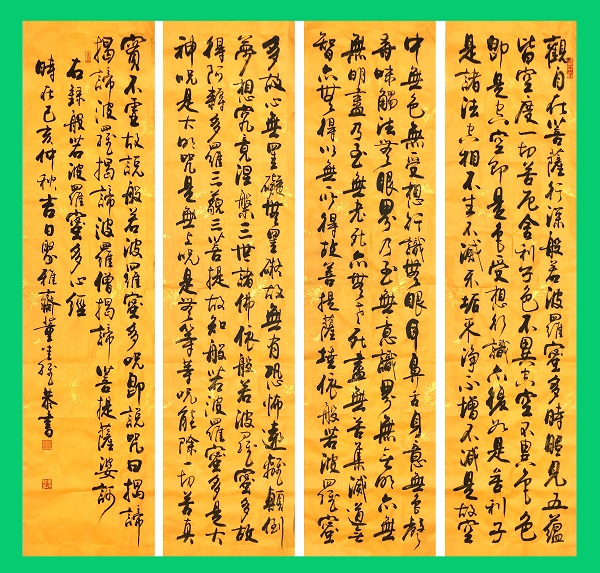 觀自在菩薩行深般若波羅蜜多時照見五蘊
皆空度一切苦厄舍利子色不異空空不異色色
即是空空即是色受想行識亦復如是舍利子
是諸法空相不生不滅不垢不淨不增不減是故空
中無色無受想行識無眼耳鼻舌身意無色聲
香味觸法無眼界乃至無意識界無無明亦無
無明盡乃至無老死亦無老死盡無苦集滅道無
智亦無得以無所得故菩提薩埵依般若波羅蜜
多故心無罣礙無罣礙故無有恐怖遠離顛倒
夢想究竟涅槃三世諸佛依般若波羅蜜多故
得阿耨多羅三藐三菩提故知般若波羅蜜多是大
神咒是大明咒是無上咒是無等等咒能除一切苦真
實不虛故說般若波羅蜜多咒即說咒曰揭諦
揭諦波羅揭諦波羅僧揭諦菩提薩婆訶
右錄般若波羅蜜多心經
時在己亥仲秋吉日聚雅齋董恭書